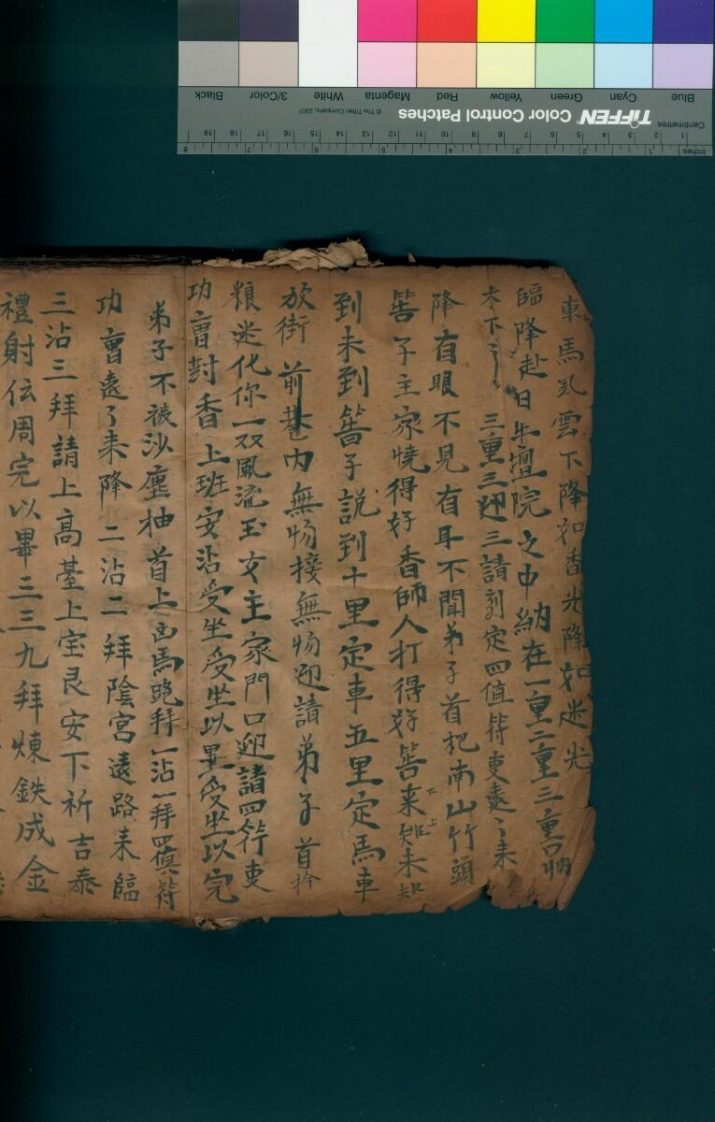 車馬乱雲下降如香光降如迷先
臨降赴日年壇院之中納在一重二重三重
三重三迎三請刻定四值符吏遠〻来
降有眼不見有耳不聞弟子首把南山竹頭
筶子主家燒得好香師人打得好筶来知未知
到未到筶子説到十里定車五里定馬車
放街前巷内無物接無物迎請弟子首拎
粮迷化你一双風流玉女主家門口迎請四符吏
功曹對香上班安沾受坐受坐以畢受坐以完
弟子不被沙塵袖首上西馬跪拜一沾一拜四慎符
功曹遠了来降二沾二拜陰宮遠路来臨
三沾三拜請上高臺上宝良安下祈吉泰
禮射伝周完以畢三三九拜煉鉄成金
TIFFEN Color Control Patches
© The Tiffen Company, 2007
Centimetres
Inches
Blue Cyan Green Yellow Red Magenta White 3/Color Black